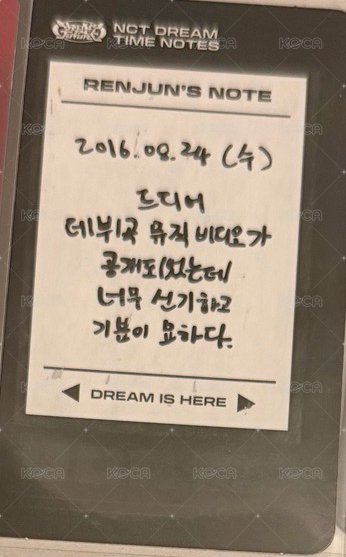 NCT DREAM
TIME NOTES
RENJUN'S NOTE
2016.08.24 (수)
드디어
데뷔곡 뮤직비디오가
공개되었는데
너무 신기하고
기분이 묘하다.
◀ DREAM IS HERE ▶
KOCA